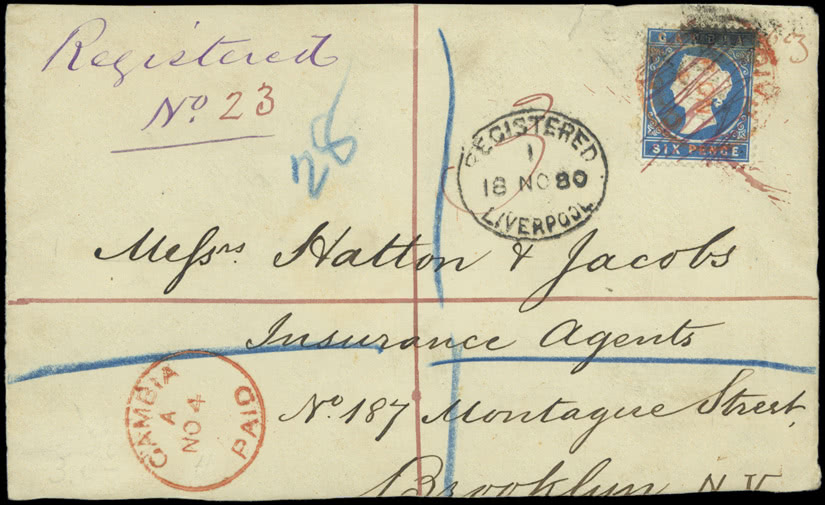 Registered
No 23
28
3
3
GAMBIA
SIX PENCE
REGISTERED
1
18 NO 80
LIVERPOOL
Messrs Hatton & Jacobs
Insurance Agents
No 187 Montague Street,
Brooklyn N.Y.
GAMBIA
A
NO 4
PAID